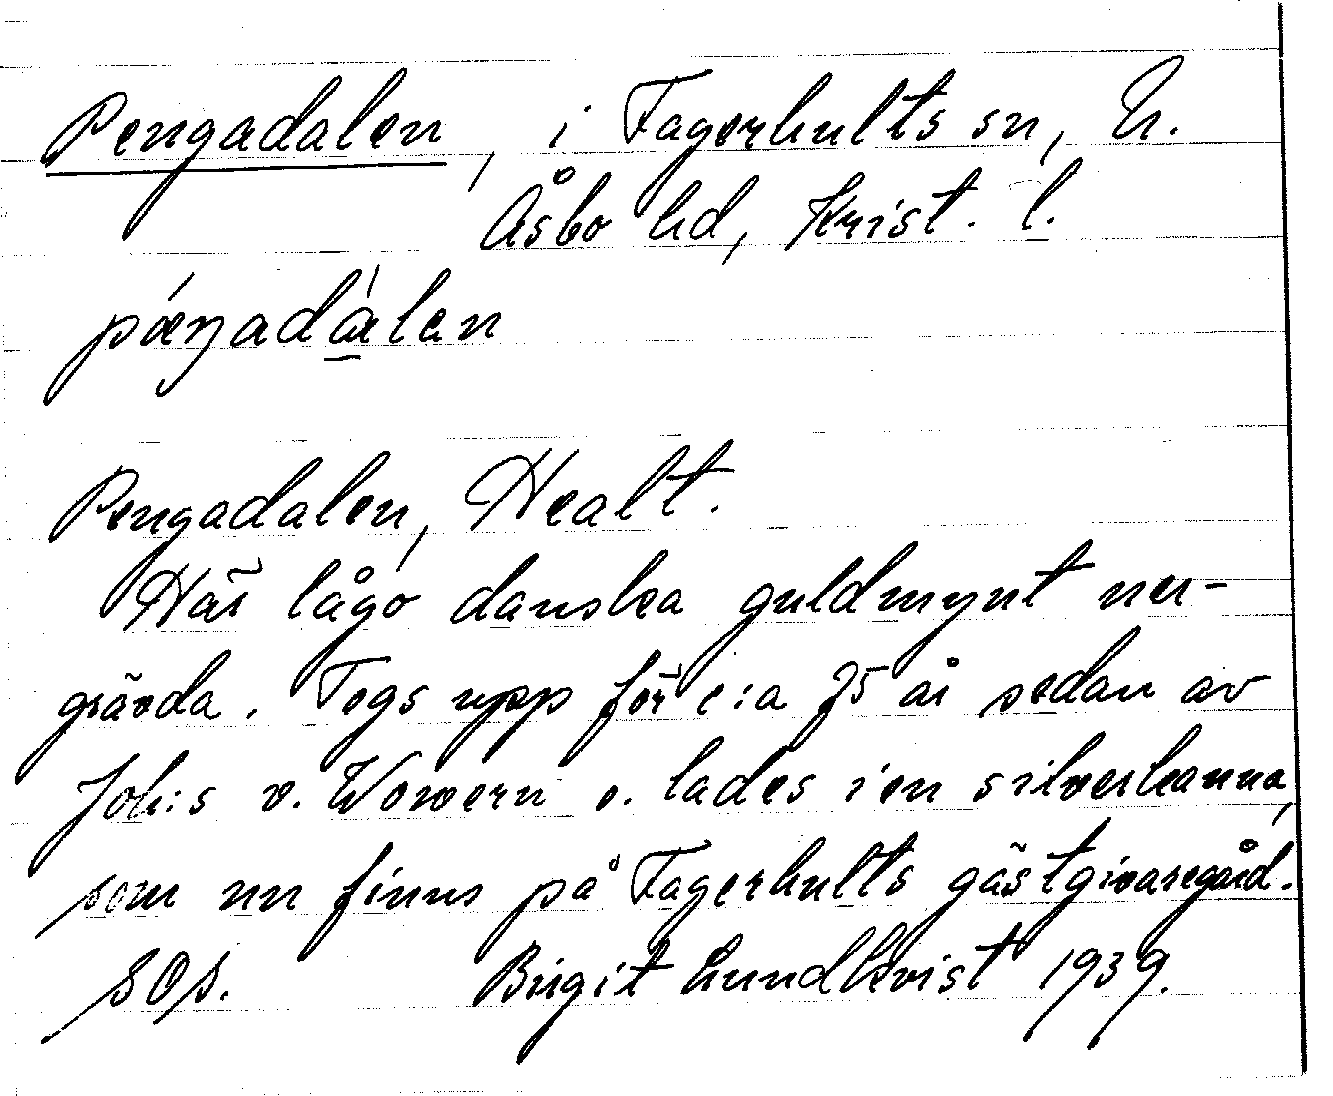 Pengadalen, i Fagerhults sn, N.
Åsbo hd, Krist. l.
Pengadalen, Healt.
Här lågo danska guldmynt ner-
grävda. Togs upp för c:a 75 år sedan av
Joh:s v. Wowern o. lades i en silverkanna,
som nu finns på Fagerhults gästgivaregård.
SOS. Birgit Lundkvist 1939.